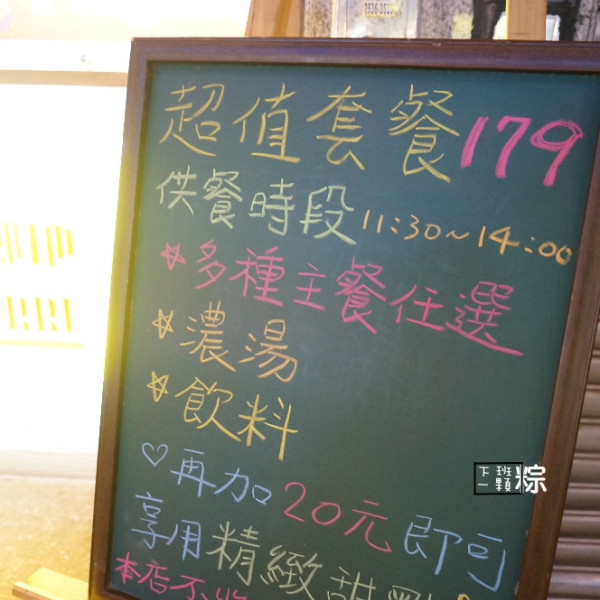 超值套餐 179
供餐時段 11:30~14:00
☆多種主餐任選
☆濃湯
☆飲料
♡再加20元即可
享用精緻甜點
本店不收
下班
一顆粽